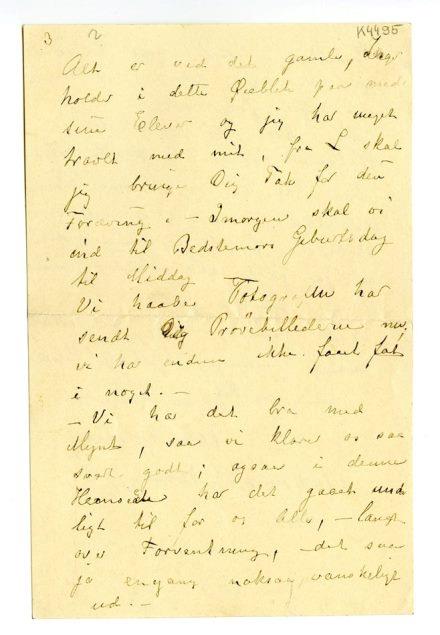 K4495
3 2
Alt er ved det gamle,
holder i dette Øieblik paa med
sine Elever og jeg har meget
travlt med mit, fra L skal
jeg bringe Dig Tak for den
. - Imorgen skal vi
ind til Bedstemors Geburtsdag
til Middag
Vi haaber Fotografen har
sendt Dig Prøvebillederne nu,
vi har endnu ikke faaet fat
i noget. -
- Vi har det bra med
Mynt, saa vi klarer os saa
godt; ogsaa i denne
Henseende har det gaaet und
ligt til for os alle, - langt
over Forventning, - det saa
jo engang noksaa vanskeligt
ud. -